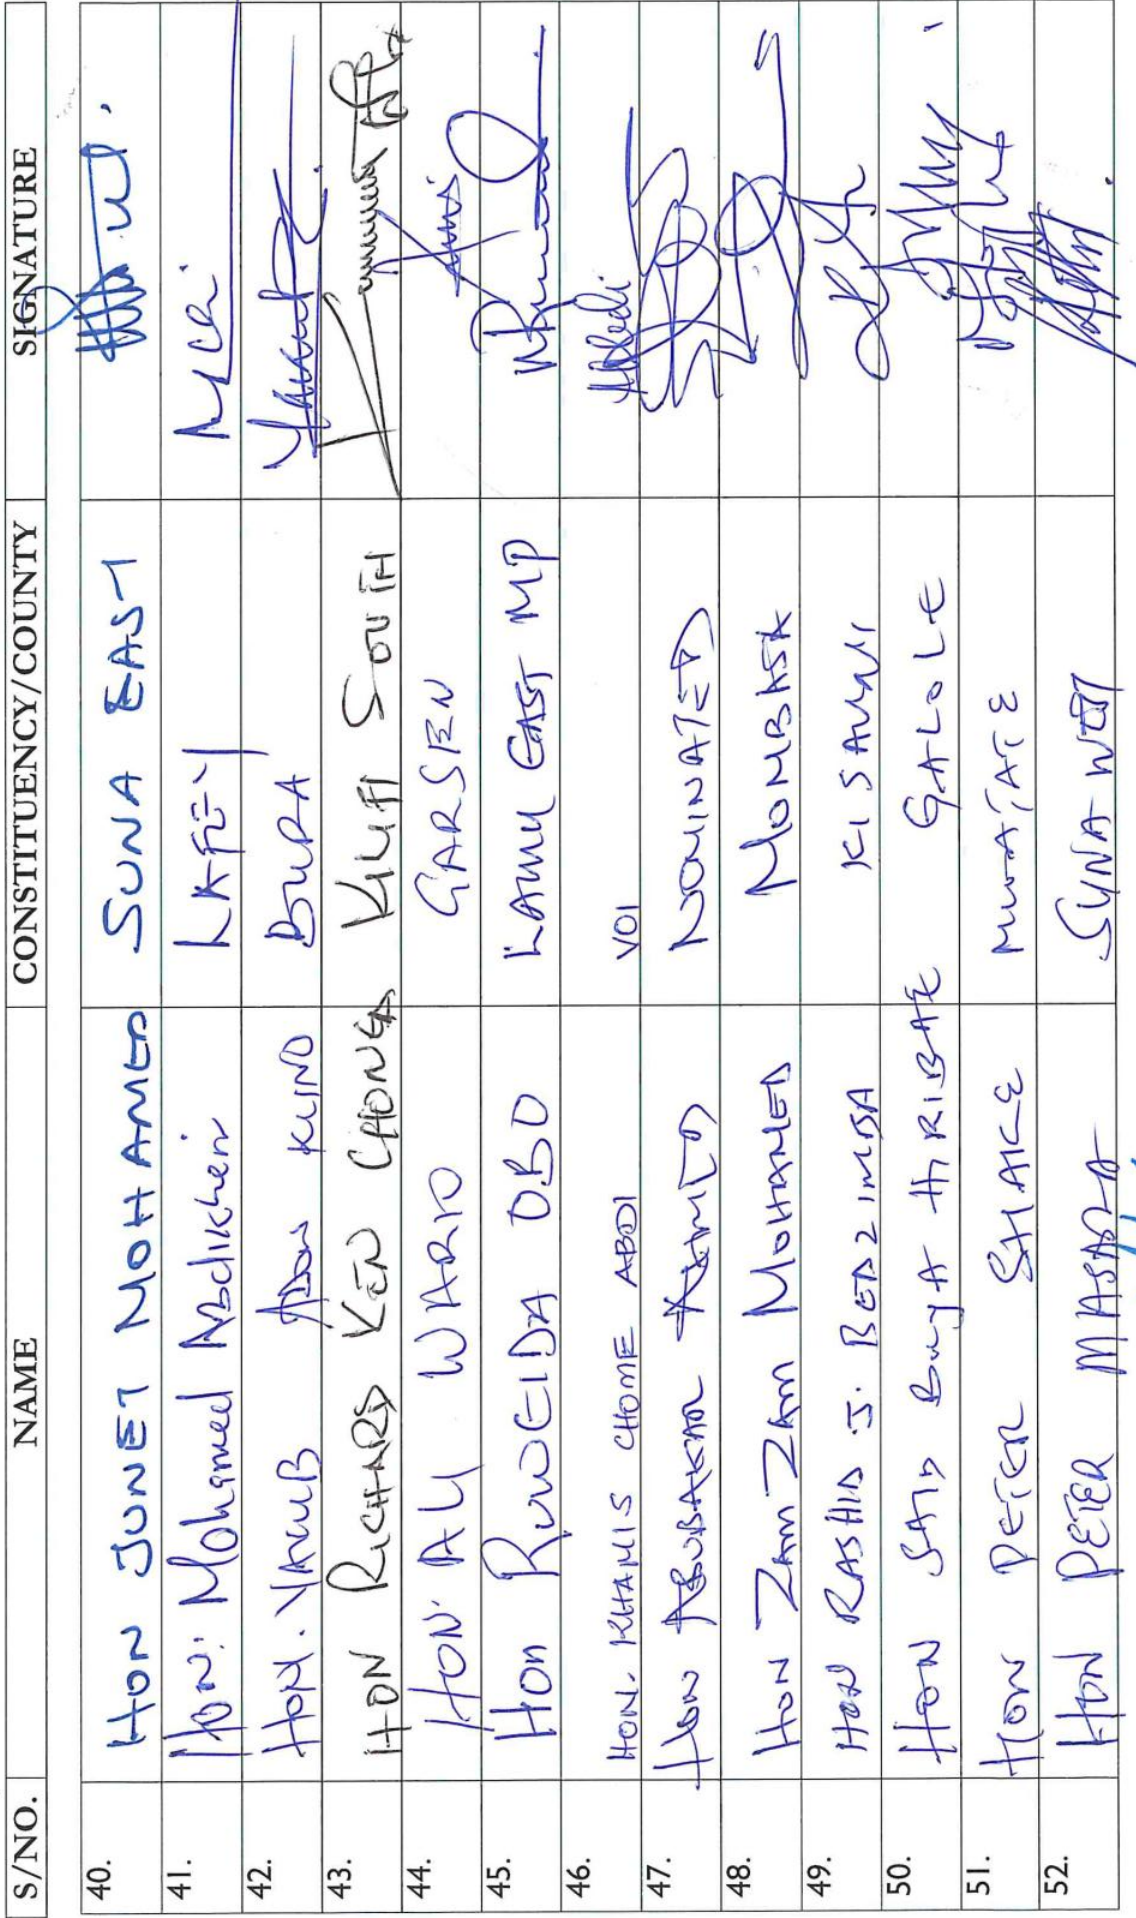 S/NO. NAME CONSTITUENCY/COUNTY SIGNATURE
40. HON JUNET MOHAMED SUNA EAST
41. HON: Mohamed Abdikheir
42. HON. YAKUB ADOW KUNO BURA
43. HON RICHARD KEN CHONGA KILIFI SOUTH
44. HON ALI WARIO GARSEN
45. HON RUWEIDA OBO LAMU EAST MP
46. HON KHAMIS CHOME ABDI VOI
47. HON ABUBAKAR NOMINATED
48. HON ZAMZAM MOHAMED MOMBASA
49. HON RASHID J. BEDZIMBA KISAUNI
50. HON SAID BUYA HIRIBAE GALOLE
51. HON PETER SHAKE MWATATE
52. HON PETER MASARA SUNA WEST